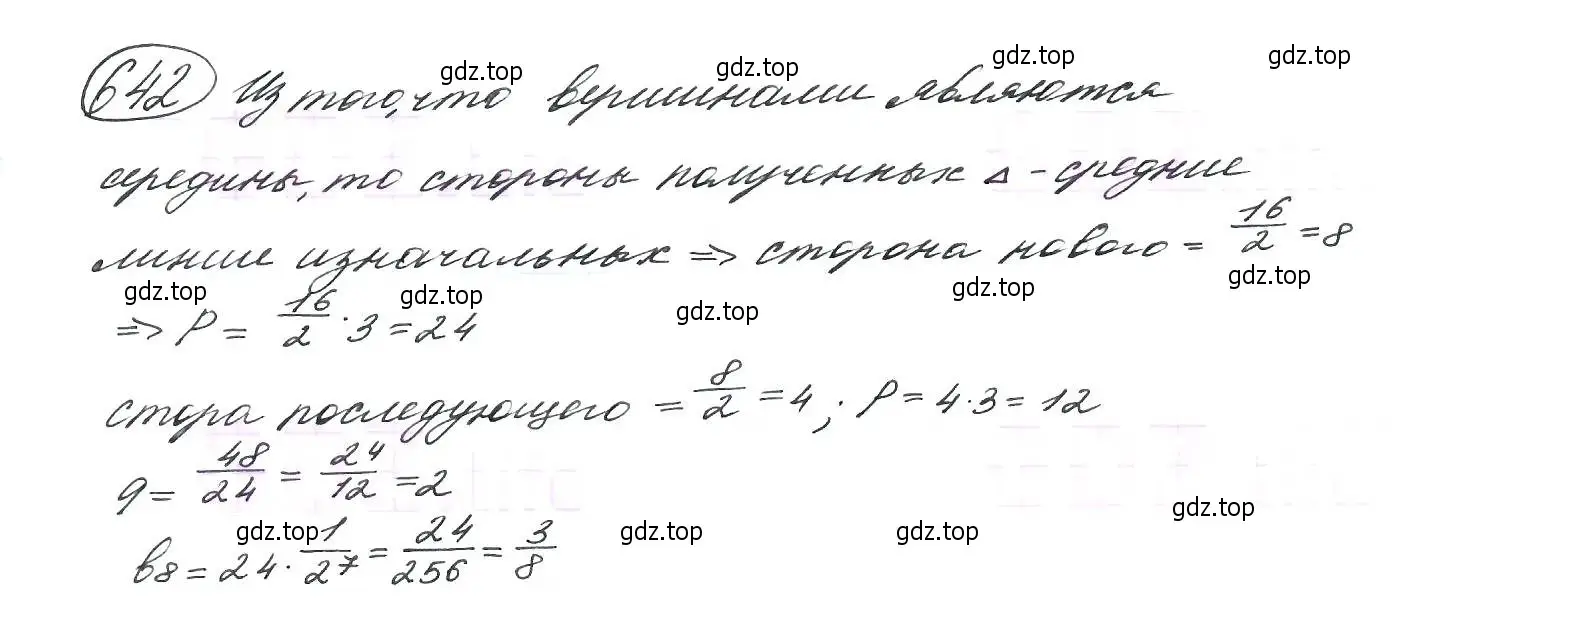 642 Из того, что вершинами являются
середины, то стороны полученных Δ - средние
линии изначальных => сторона нового = 16/2 = 8
=> P = 16/2 · 3 = 24
стора последующего = 8/2 = 4; P = 4·3 = 12
q = 48/24 = 24/12 = 2
b8 = 24 · 1/27 = 24/256 = 3/8
gdz.top gdz.top gdz.top gdz.top
gdz.top gdz.top gdz.top gdz.top gdz.top
gdz.top gdz.top gdz.top gdz.top